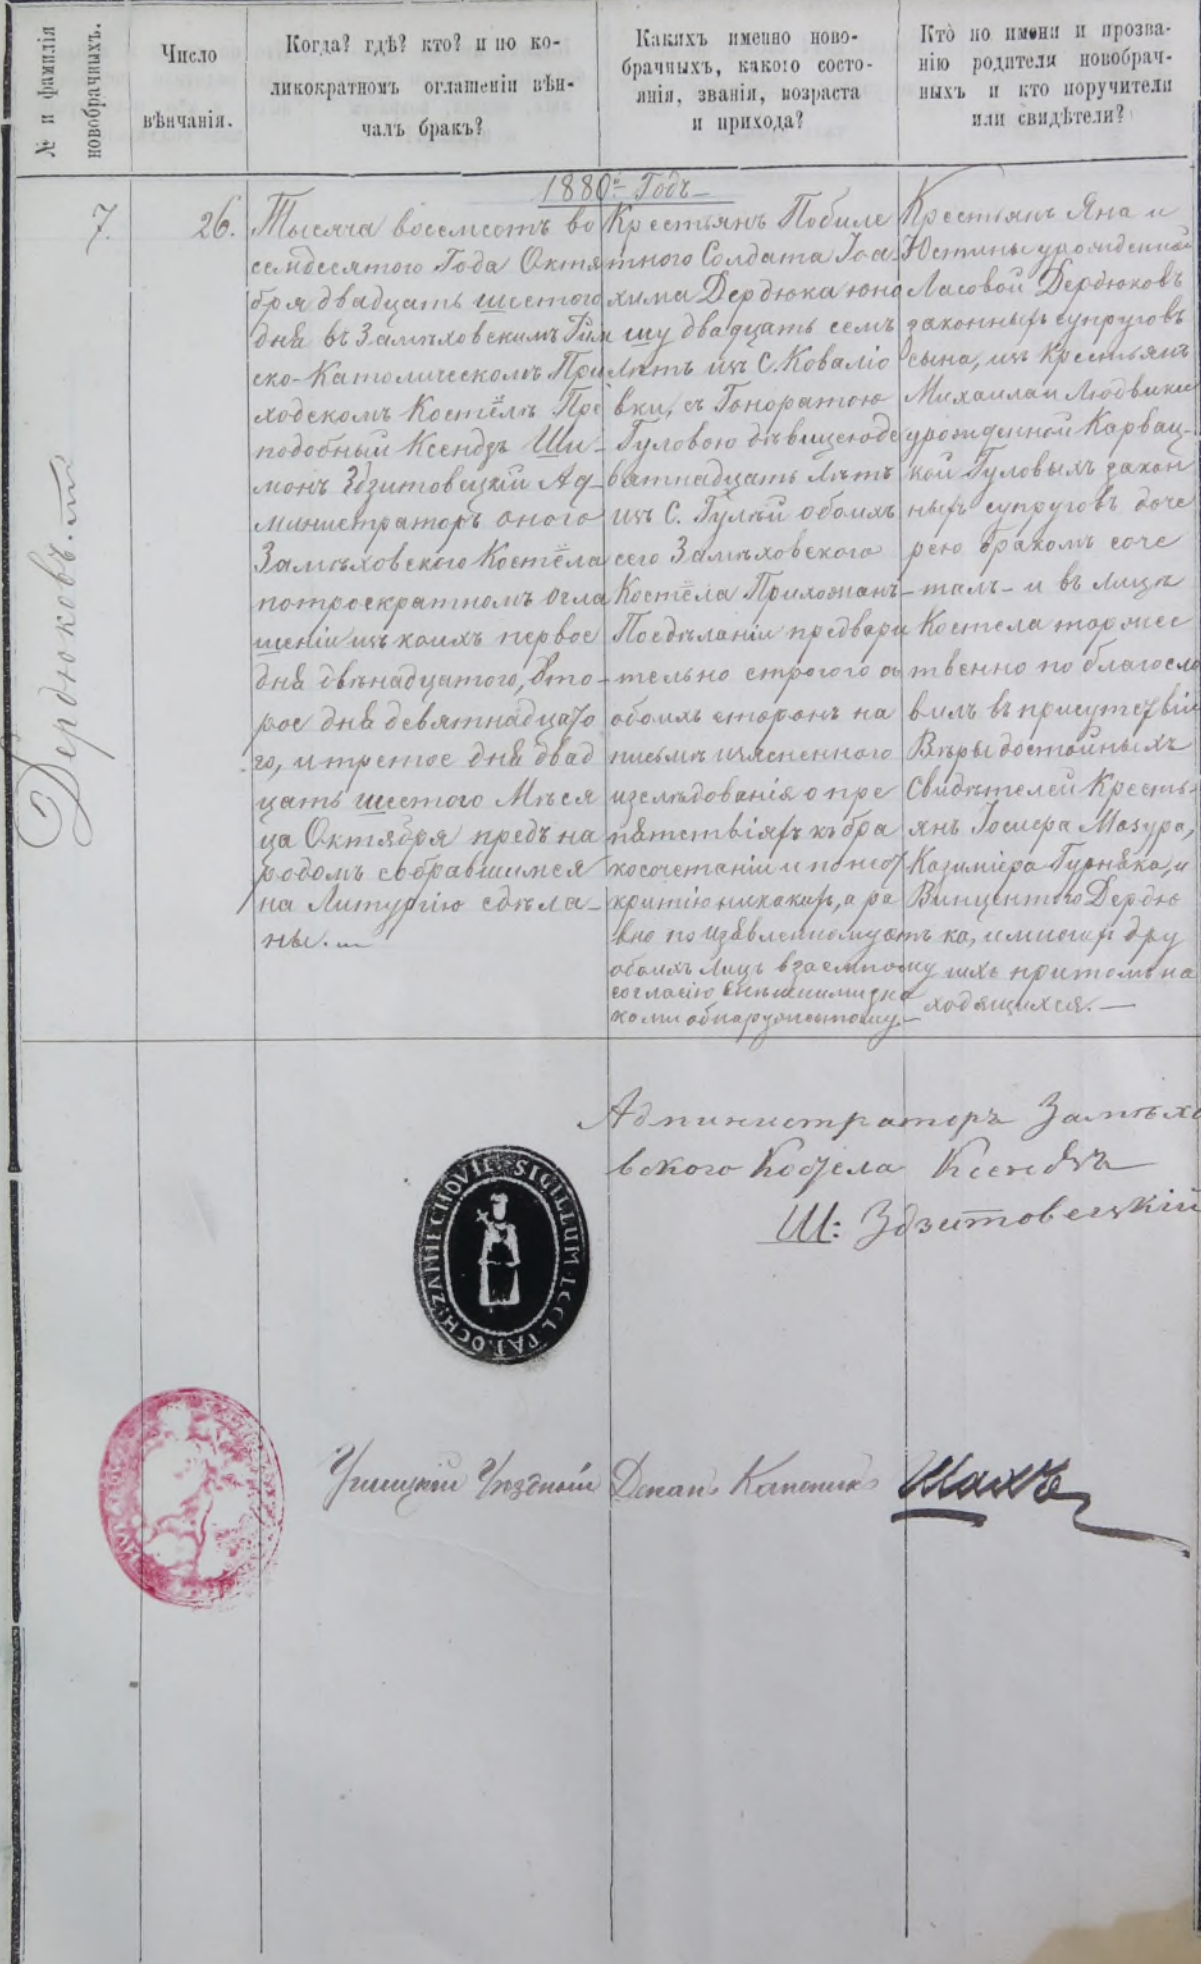 № и фамилія
новобрачныхъ.
Число
вѣнчанія.
Когда? гдѣ? кто? и по ко-
ликократномъ оглашеніи вѣн-
чалъ бракъ?
Какихъ именно ново-
брачныхъ, какого состо-
янія, званія, возраста
и прихода?
Кто по имени и прозва-
нію родители новобрач-
ныхъ и кто поручители
или свидѣтели?
1880й Годъ
7.
Дердюковъ.
26.
Тысяча восемсотъ во
семдесятого Года Октя
бря двадцать шестого
дня въ Замѣховскимъ Рим
ско-Католическомъ При
ходскомъ Костёлѣ Пре
подобный Ксендзъ Ши-
монъ Здзитовецкій Ад-
министраторъ оного
Замѣховского Костёла
потроекратномъ огла
шеніи изъ коихъ первое
дня двѣнадцатого, вто-
рое дня девятнадцато
го, и третое дня двад
цать шестого Мѣся
ца Октября предъ на
родомъ собравшимся
на Литургію сдѣла-
ны.
Крестьянъ Побиле
тного Солдата Іоа
хима Дердюка юно
шу двадцать семъ
лѣтъ изъ С. Коваліо
вки, съ Гоноратою
Гуловою дѣвицею де
вятнадцать лѣтъ
изъ С. Гулѣй обоихъ
сего Замѣховского
Костёла Прихожанъ-
Посдѣланіи предвари
тельно строгого съ
обоихъ сторонъ на
письмѣ изясненного
изслѣдованія о пре
пятствіяхъ къ бра
косочетаніи и по неот
критію никакихъ, а ра
вно по изявленному отъ
обоихъ Лицъ взаемному
согласію внѣшними зна
ками обнаруженному.-
Крестьянъ Яна и
Юстины урожденной
Ласовой Дердюковъ
законныхъ супруговъ
сына, изъ Крестьянъ
Михаила и Людвики
урожденной Карвац-
кой Гуловыхъ закон
ныхъ супруговъ доче
рею бракомъ соче
талъ- и въ лицѣ
Костела торжес
твенно поблагосло
вилъ въ присутствіи
Вѣры достойныхъ
Свидѣтелей Кресть-
янъ Іосифа Мазура,
Казиміера Гурняка, и
Винцентого Дердю
ка, имногихъ дру
гихъ притомъ на
ходящихся.—
Администраторъ Замѣхо
вского Костела Ксендзъ
Ш: Здзитовецкій
SIGILLUM ECCL PAROCH: ZAMIECHOVIE
Ушицкій Уѣздный Деканъ Каноникъ